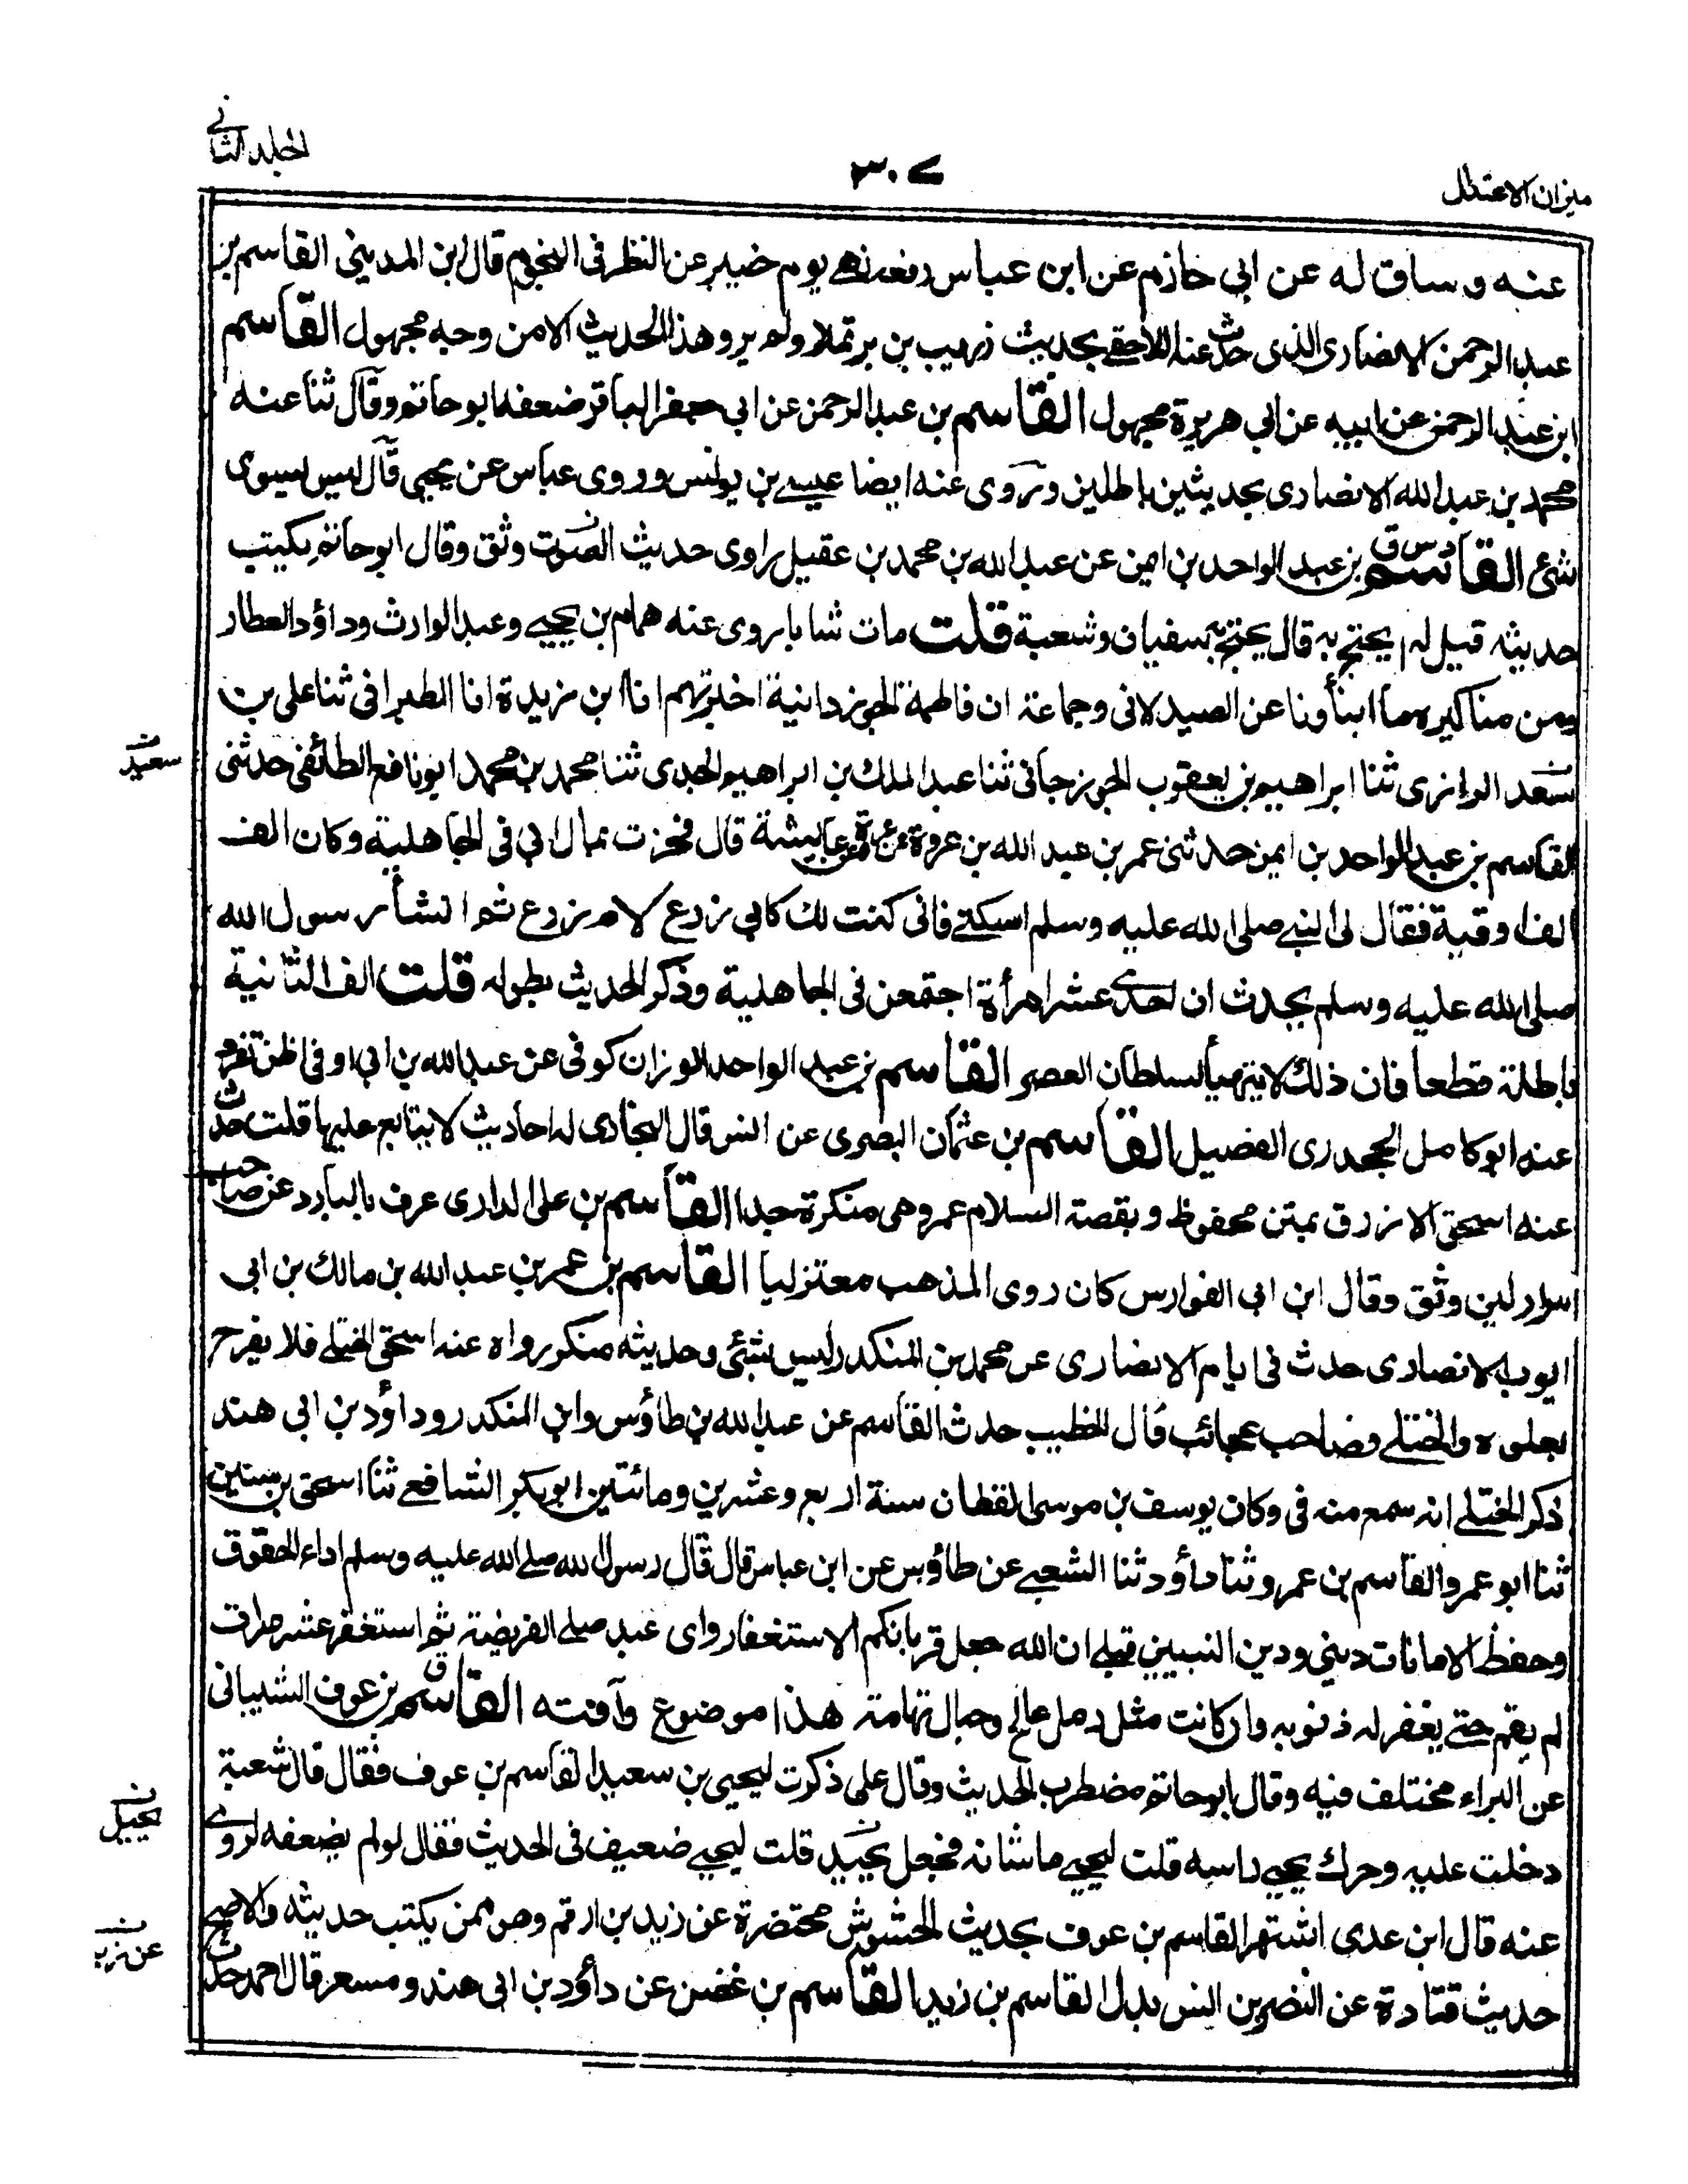 ميزان الاعتدال
٣٠٧
الجلد الثاني
عنه وساق له عن ابي حازم عن ابن عباس رفعه نهى يوم خيبر عن النظر فى النجوم قال ابن المديني القاسم بن
عبد الرحمن الانصارى الذى حدث عنه بحديث زريب بن برتملا ولم يرو هذا الحديث الا من وجه مجهول القاسم
ابن عبد الرحمن عن ابيه عن ابي هريرة مجهول القاسم بن عبد الرحمن عن ابي جعفر الباقر ضعفه ابو حاتم وقال ثنا عنه
محمد بن عبد الله الانصارى بحديثين باطلين وروى عنه ايضا عيسى بن يونس وروى عباس عن يحيى قال ليس يسوى
شئ القاسم بن عبد الواحد بن ايمن عن عبد الله بن محمد بن عقيل راوى حديث الصوت وثق وقال ابو حاتم يكتب
حديثه قيل له ايحتج به قال يحتج بسفيان وشعبة قلت مات شابا روى عنه همام بن يحيى وعبد الوارث وداؤد العطار
ومن مناكيره ما انبأونا عن الصيدلانى وجماعة ان فاطمة الجوزدانية اخبرتهم انا ابن ريذة انا الطبرانى ثنا على بن
سعد الرازى ثنا ابراهيم بن يعقوب الجوزجانى ثنا عبد الملك بن ابراهيم الجدى ثنا محمد بن محمد ابو نافع الطائفى حدثنى
سعيد
القاسم بن عبد الواحد بن ايمن حدثنى عمر بن عبد الله بن عروة عن عروة عن عايشة قال فخرت بمال ابي فى الجاهلية وكان الف
الف اوقية فقال لى النبى صلى الله عليه وسلم اسكتى فانى كنت لك كابي زرع لام زرع ثم انشأ رسول الله
صلى الله عليه وسلم يحدث ان احدى عشر امرأة اجتمعن فى الجاهلية وذكر الحديث بطوله قلت الف الثانية
باطلة قطعا فان ذلك لا يتهيأ لسلطان العصر القاسم بن عبد الواحد الوزان كوفى عن عبد الله بن ابي اوفى اظن تفرد
عنه ابو كامل الجحدرى الفضيل القاسم بن عثمان البصرى عن انس قال البخارى له احاديث لا يتابع عليها قلت حدث
عنه اسحق الازرق بمتن محفوظ وبقصة اسلام عمر وهى منكرة جدا القاسم بن على الدارى عرف بالبارد عن صاحب
لين وثق وقال ابن ابى الفوارس كان روى المذهب معتزليا القاسم بن عمر بن عبد الله بن مالك بن ابى
ايوب الانصارى حدث فى ايام الانصارى عن محمد بن المنكدر ليس بشئ وحديثه منكر رواه عنه اسحق الختلى فلا يفرح
بعلوه والختلى فصاحب عجائب قال الخطيب حدث القاسم عن عبد الله بن طاؤس وابن المنكدر وداؤد بن ابى هند
ذكر الختلى انه سمع منه فى وكان يوسف بن موسى القطان سنة اربع وعشرين ومائتين ابو بكر الشافعى ثنا اسحق بن سنين
ثنا ابو عمرو القاسم بن عمر وثنا داؤد ثنا الشعبى عن طاؤس عن ابن عباس قال قال رسول الله صلى الله عليه وسلم اداء الحقوق
وحفظ الامانات دينى ودين النبيين قبلى ان الله جعل قربانكم الاستغفار واى عبد صلى الفريضة ثم استغفر عشر مرات
لم يقم حتى يغفر له ذنوبه وان كانت مثل رمل عالج وجبال تهامة هذا موضوع وآفته القاسم بن عوف الشيبانى
عن البراء مختلف فيه وقال ابو حاتم مضطرب الحديث وقال على ذكرت ليحيى بن سعيد القاسم بن عوف فقال قال شعبة
دخلت عليه وحرك يحيى راسه قلت ليحيى ما شانه فجعل يحيد قلت ليحيى ضعيف فى الحديث فقال لو لم يضعفه لروى
عنه قال ابن عدى اشتهر القاسم بن عوف بحديث الحشوش محتضرة عن زيد بن ارقم وهو ممن يكتب حديثه والاصح
عن زيد
حديث قتادة عن النضر بن انس بدل القاسم بن زيد القاسم بن غصن عن داؤد بن ابى هند ومسعر قال احمد حدث